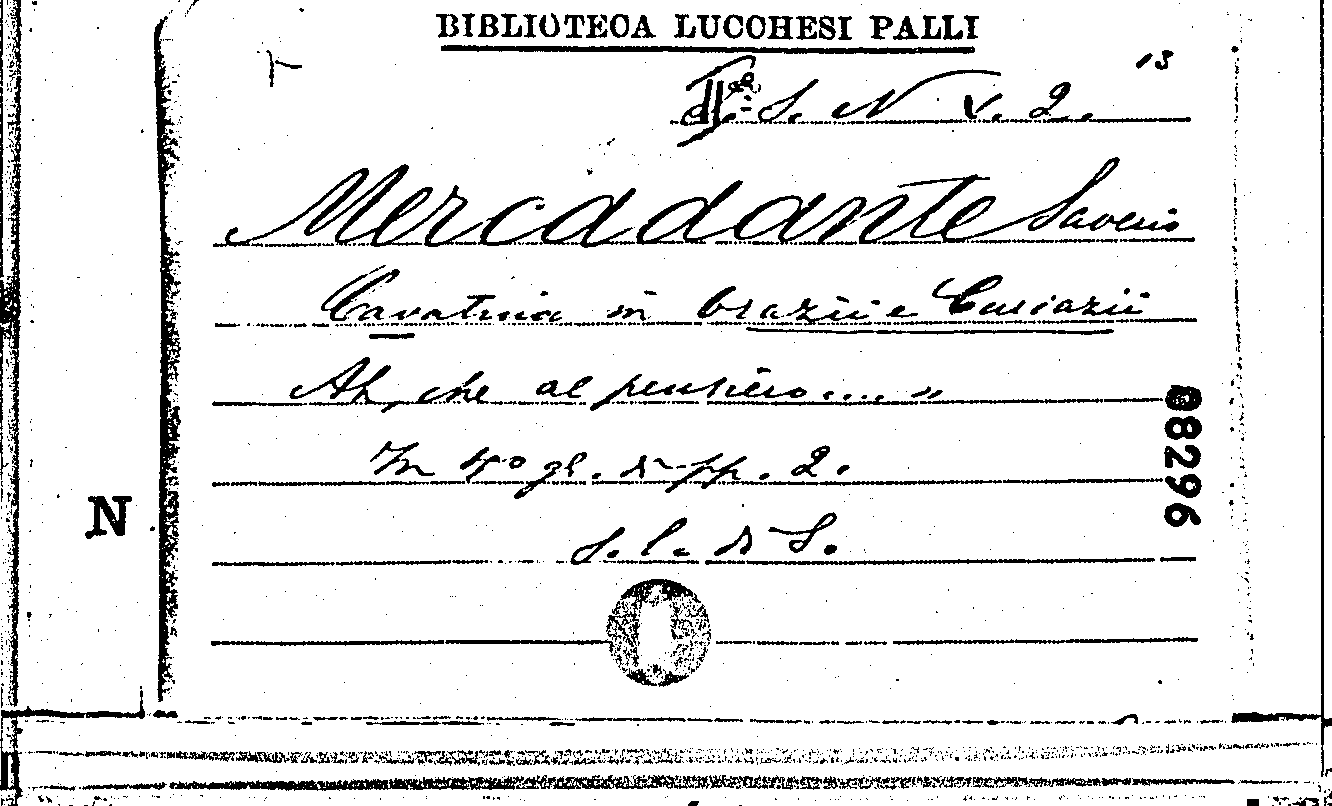 BIBLIOTECA LUCCHESI PALLI
13
S. N V. 2.
Mercadante Saverio
Cavatina in Orazii e Curiazii
Ah, che al pensiero.... "
In 4º gl. di pp. 2.
S. l. di S.
08296
N